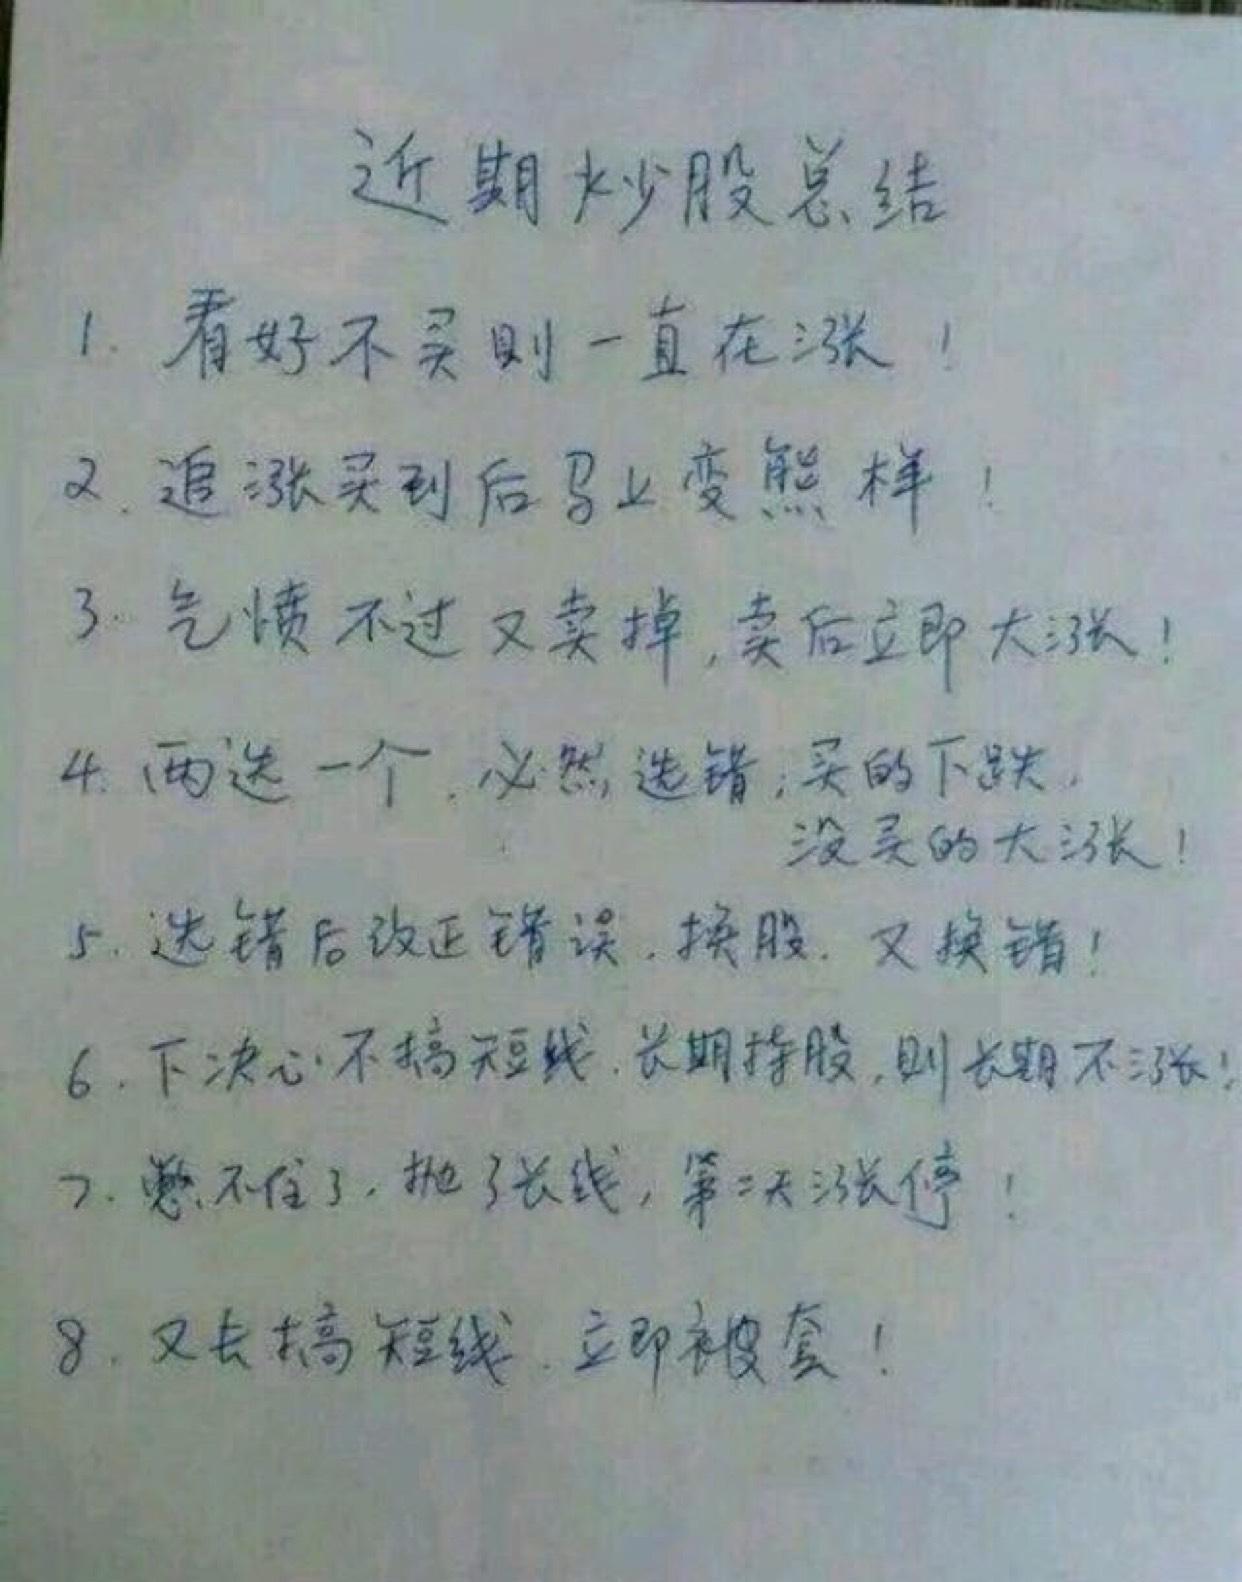 近期炒股总结
1. 看好不买则一直在涨！
2. 追涨买到后马上变熊样！
3. 气愤不过又卖掉,卖后立即大涨！
4. 两选一个,必然选错;买的下跌,
没买的大涨！
5. 选错后改正错误,换股,又换错！
6. 下决心不搞短线,长期持股,则长期不涨！
7. 憋不住了,抛了长线,第二天涨停！
8. 又去搞短线,立即被套！